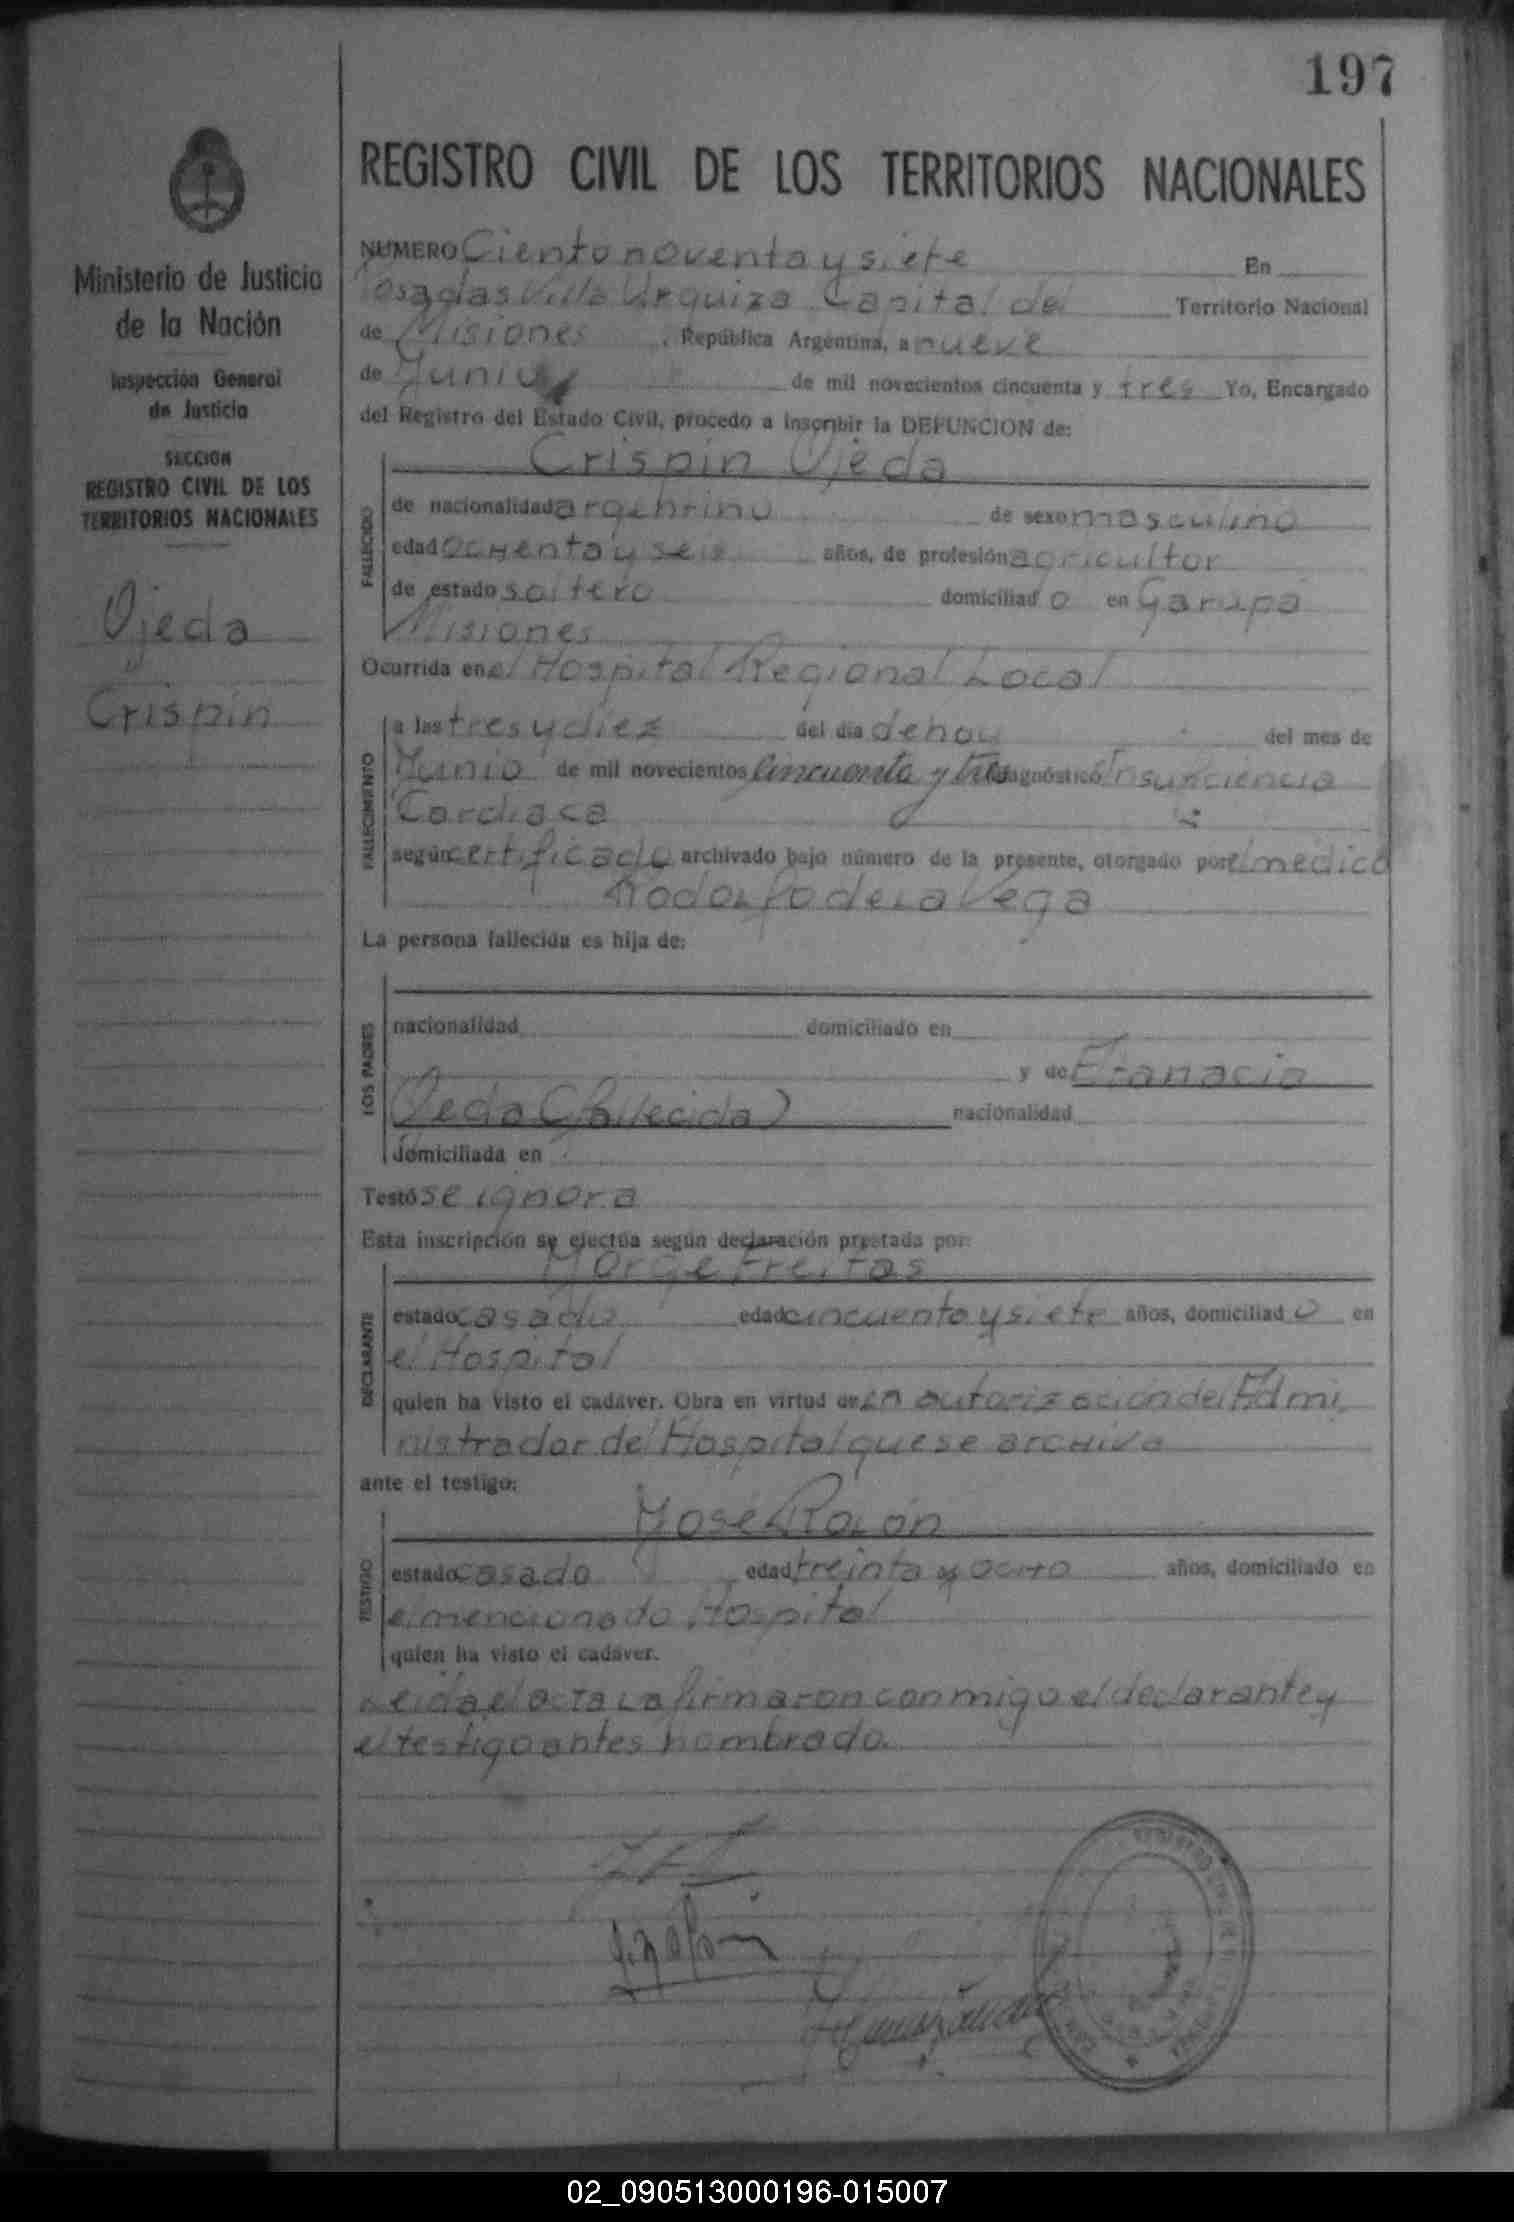 197
REGISTRO CIVIL DE LOS TERRITORIOS NACIONALES
Ministerio de Justicia
de la Nación
Inspección General
de Justicia
SECCION
REGISTRO CIVIL DE LOS
TERRITORIOS NACIONALES
Ojeda
Crispin
NUMERO Ciento noventa y siete En
Posadas Villa Urquiza Capital del Territorio Nacional
de Misiones, República Argentina, a nueve
de Junio de mil novecientos cincuenta y tres Yo, Encargado
del Registro del Estado Civil, procedo a inscribir la DEFUNCION de:
Crispin Ojeda
FALLECIDO
de nacionalidad argentino de sexo masculino
edad ochenta y seis años, de profesión agricultor
de estado soltero domiciliado en Garupa
Misiones
Ocurrida en el Hospital Regional Local
FALLECIMIENTO
a las tres y diez del dia de hoy del mes de
Junio de mil novecientos cincuenta y tres diagnóstico Insuficiencia
Cardiaca
según certificado archivado bajo número de la presente, otorgado por el medico
Rodolfo de La Vega
La persona fallecida es hija de:
LOS PADRES
nacionalidad domiciliado en
y de
Ojeda (fallecida) nacionalidad
domiciliada en
Testó se ignora
Esta inscripción se efectúa según declaración prestada por:
Jorge Freitas
DECLARANTE
estado casado edad cincuenta y siete años, domiciliado en
el Hospital
quien ha visto el cadáver. Obra en virtud de La autorización del Admi
nistrador del Hospital que se archiva
ante el testigo:
José Rolón
TESTIGO
estado casado edad treinta y ocho años, domiciliado en
el mencionado Hospital
quien ha visto el cadáver.
Leida el acta La firmaron conmigo el declarante y
el testigo antes nombrado.
02_090513000196-015007